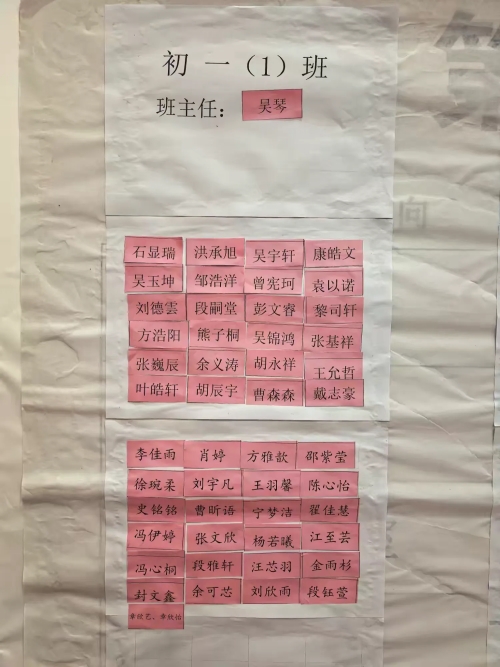 初一（1）班
班主任： 吴琴
石显瑞 洪承旭 吴宇轩 康皓文
吴玉坤 邹浩洋 曾宪珂 袁以诺
刘德雲 段嗣堂 彭文睿 黎司轩
方浩阳 熊子桐 吴锦鸿 张基祥
张巍辰 余义涛 胡永祥 王允哲
叶皓轩 胡辰宇 曹森森 戴志豪
李佳雨 肖婷 方雅歆 邵紫莹
徐琬柔 刘宇凡 王羽馨 陈心怡
史铭铭 曹昕语 宁梦洁 翟佳慧
冯伊婷 张文欣 杨若曦 江至芸
冯心桐 段雅轩 汪芯羽 金雨杉
封文鑫 余可芯 刘欣雨 段钰萱